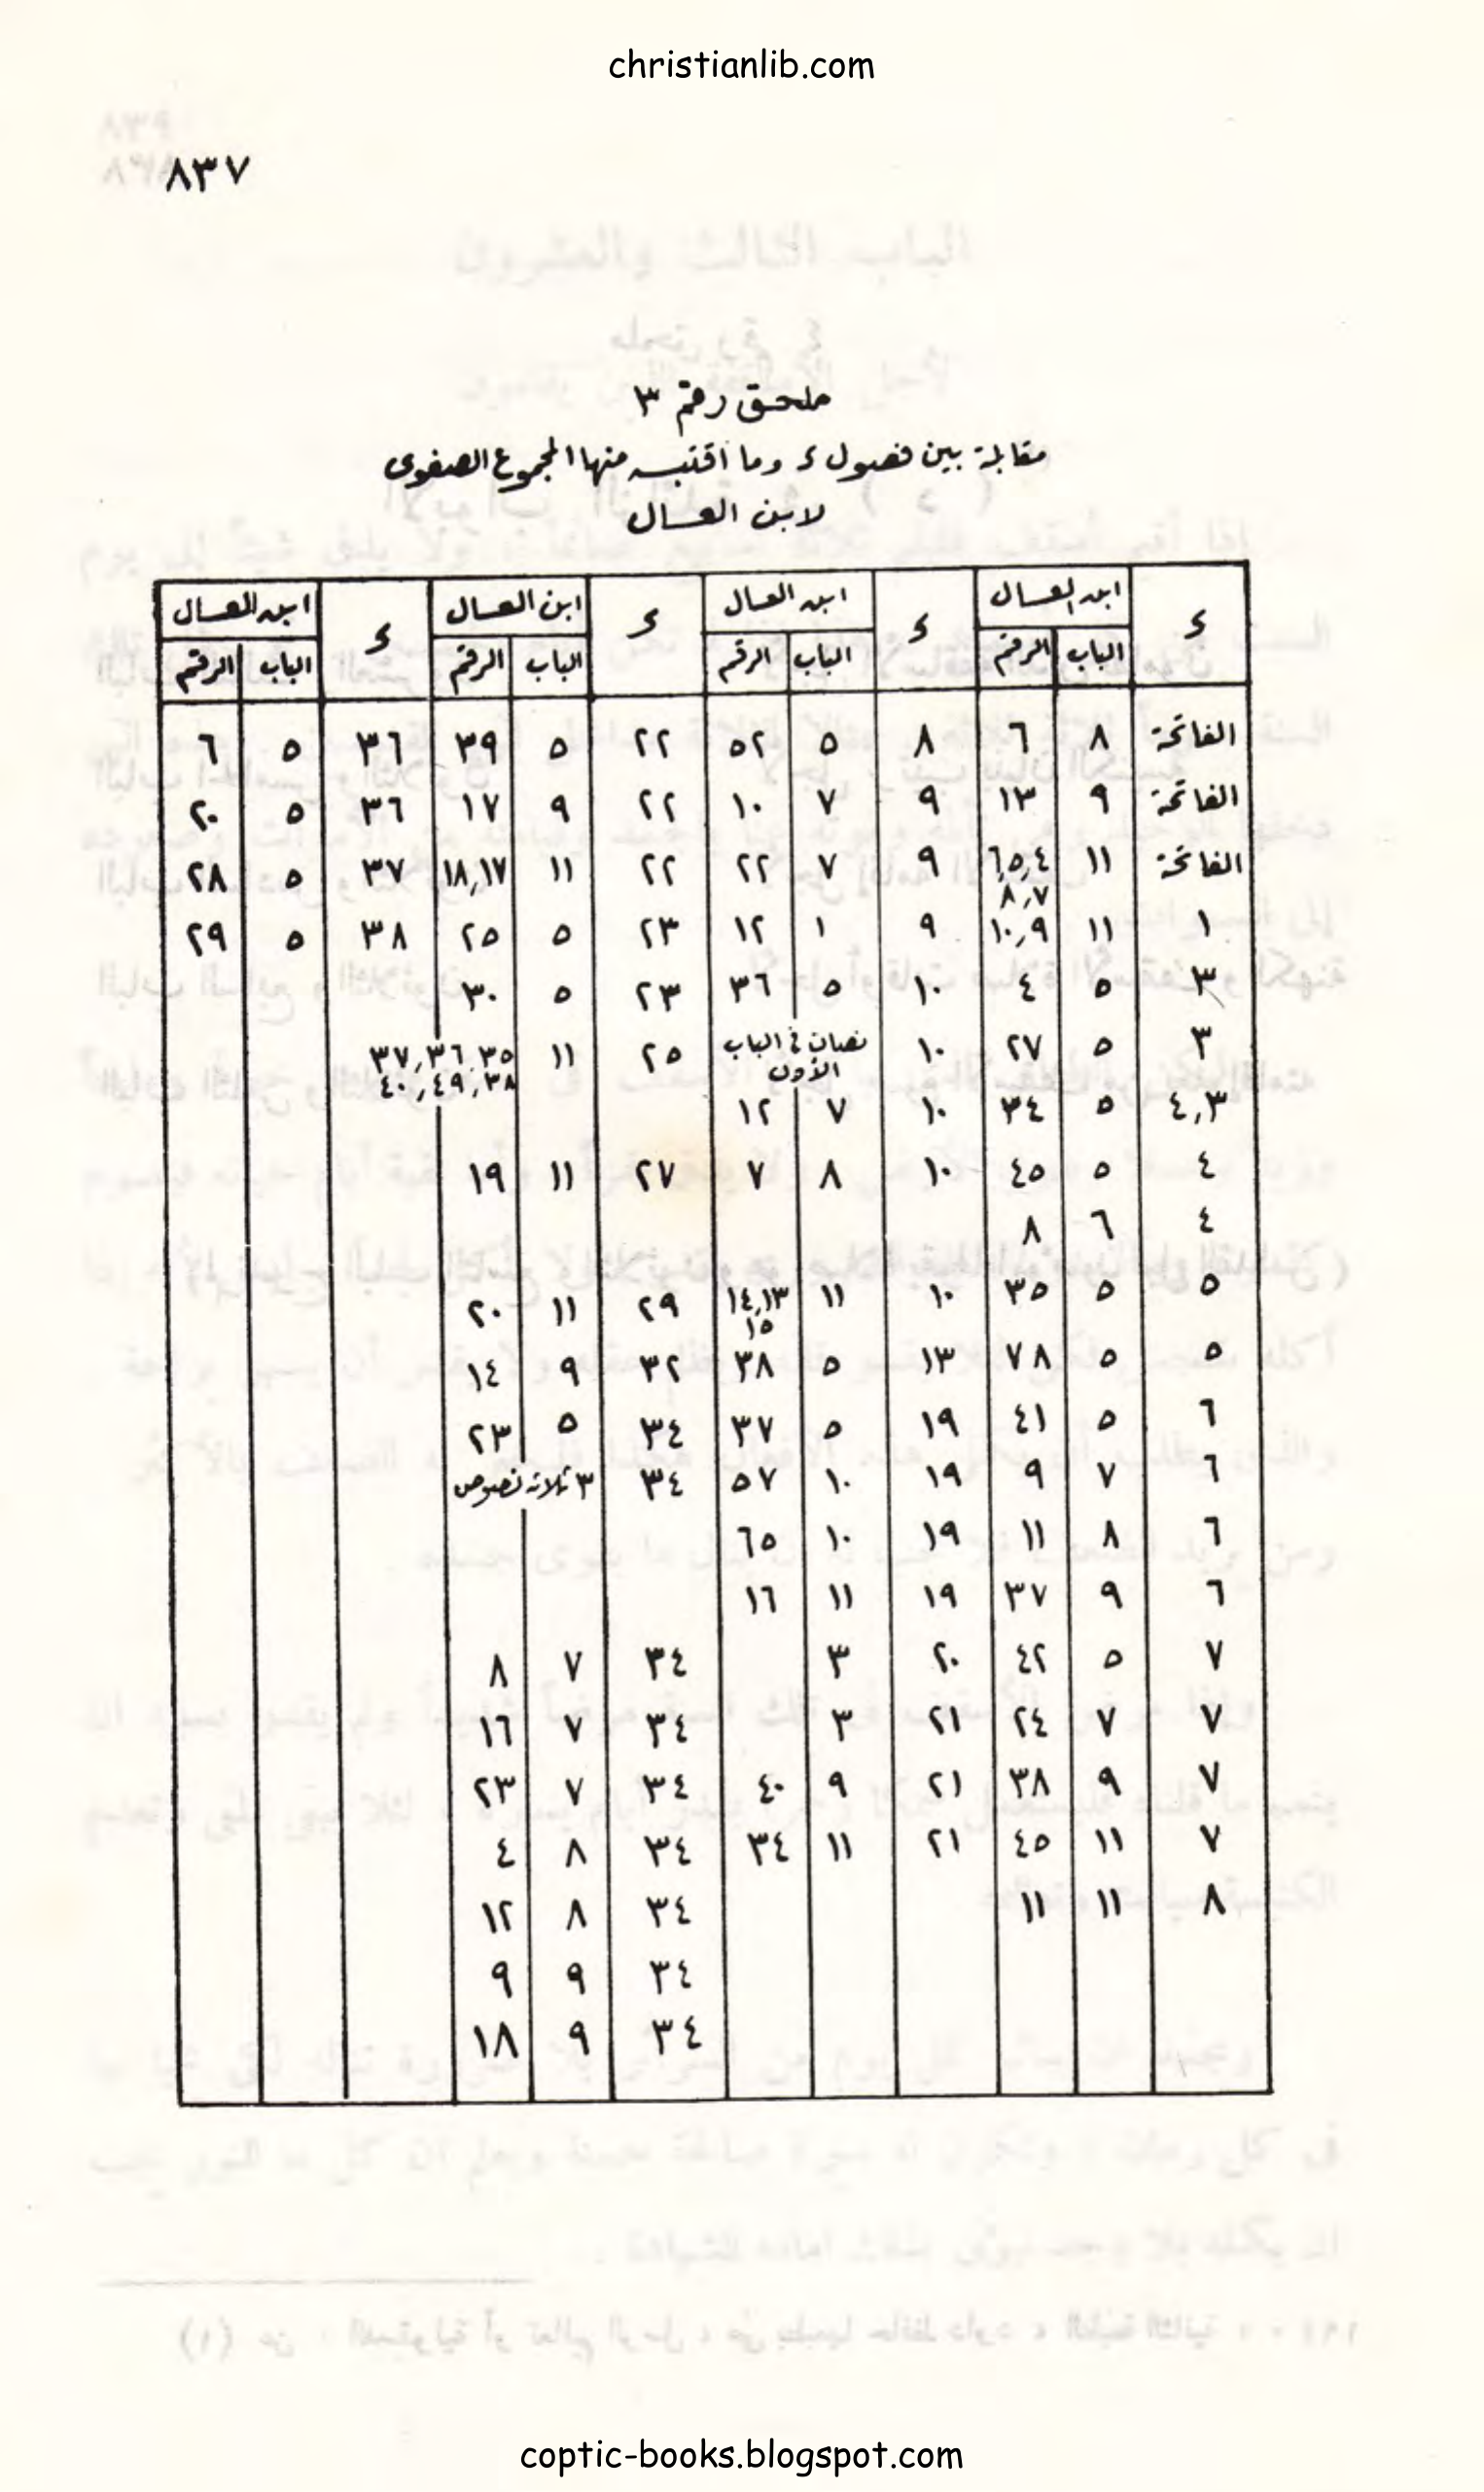 christianlib.com
٨٣٧
ملحق رقم ٣
مقابلة بين فصول ء وما اقتبسه منها المجموع الصفوى
لابن العسال
ء | ابن العسال | ء | ابن العسال | ء | ابن العسال | ء | ابن العسال
الباب | الرقم | الباب | الرقم | الباب | الرقم | الباب | الرقم
الفاتحة | ٨ | ٦ | ٨ | ٥ | ٥٢ | ٢٢ | ٥ | ٣٩ | ٣٦ | ٥ | ٦
الفاتحة | ٩ | ١٣ | ٩ | ٧ | ١٠ | ٢٢ | ٩ | ١٧ | ٣٦ | ٥ | ٢٠
الفاتحة | ١١ | ٤,٥,٦ | ٩ | ٧ | ٢٢ | ٢٢ | ١١ | ١٧,١٨ | ٣٧ | ٥ | ٢٨
٧,٨
١ | ١١ | ٩,١٠ | ٩ | ١ | ١٢ | ٢٣ | ٥ | ٢٥ | ٣٨ | ٥ | ٢٩
٣ | ٥ | ٤ | ١٠ | ٥ | ٣٦ | ٢٣ | ٥ | ٣٠
٣ | ٥ | ٢٧ | ١٠ | نصان في الباب | ٢٥ | ١١ | ٣٥,٣٦,٣٧
الأول | ٣٨,٤٩,٤٠
٣,٤ | ٥ | ٣٤ | ١٠ | ٧ | ١٢
٤ | ٥ | ٤٥ | ١٠ | ٨ | ٧ | ٢٧ | ١١ | ١٩
٤ | ٦ | ٨
٥ | ٥ | ٣٥ | ١٠ | ١١ | ١٣,١٤ | ٢٩ | ١١ | ٢٠
١٥
٥ | ٥ | ٧٨ | ١٣ | ٥ | ٣٨ | ٣٢ | ٩ | ١٤
٦ | ٥ | ٤١ | ١٩ | ٥ | ٣٧ | ٣٤ | ٥ | ٢٣
٦ | ٧ | ٩ | ١٩ | ١٠ | ٥٧ | ٣٤ | ٣ ثلاثة نصوص
٦ | ٨ | ١١ | ١٩ | ١٠ | ٦٥
٦ | ٩ | ٣٧ | ١٩ | ١١ | ١٦
٧ | ٥ | ٤٢ | ٢٠ | ٣ | ٣٤ | ٧ | ٨
٧ | ٧ | ٢٤ | ٢١ | ٣ | ٣٤ | ٧ | ١٦
٧ | ٩ | ٣٨ | ٢١ | ٩ | ٤٠ | ٣٤ | ٧ | ٢٣
٧ | ١١ | ٤٥ | ٢١ | ١١ | ٣٤ | ٣٤ | ٨ | ٤
٨ | ١١ | ١١ | ٣٤ | ٨ | ١٢
٣٤ | ٩ | ٩
٣٤ | ٩ | ١٨
coptic-books.blogspot.com